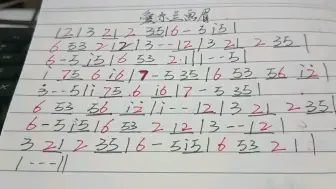 1 2 | 3 2 1 2 3 5 | 6 - 5 i 5 |
6 5 3 2 1 2 | 3 - - 1 2 | 3 2 1 2 3 5 |
6 - 5 i 5 | 6 5 3 2 · 1 | 1 - - 5 |
i 7 5 6 i 6 | 7 - 5 3 5 | 6 5 3 5 6 i 2 |
3 - - 5 | i 7 5 6 i 6 | 7 - 5 3 5 |
6 5 3 5 6 i 2 | i - - 1 2 | 3 2 1 2 3 5
6 - 5 i 5 | 6 5 3 2 1 2 | 3 - - 1 2 |
3 2 1 2 3 5 | 6 - 5 i 5 | 6 5 3 2 1 |
1 - - - ||